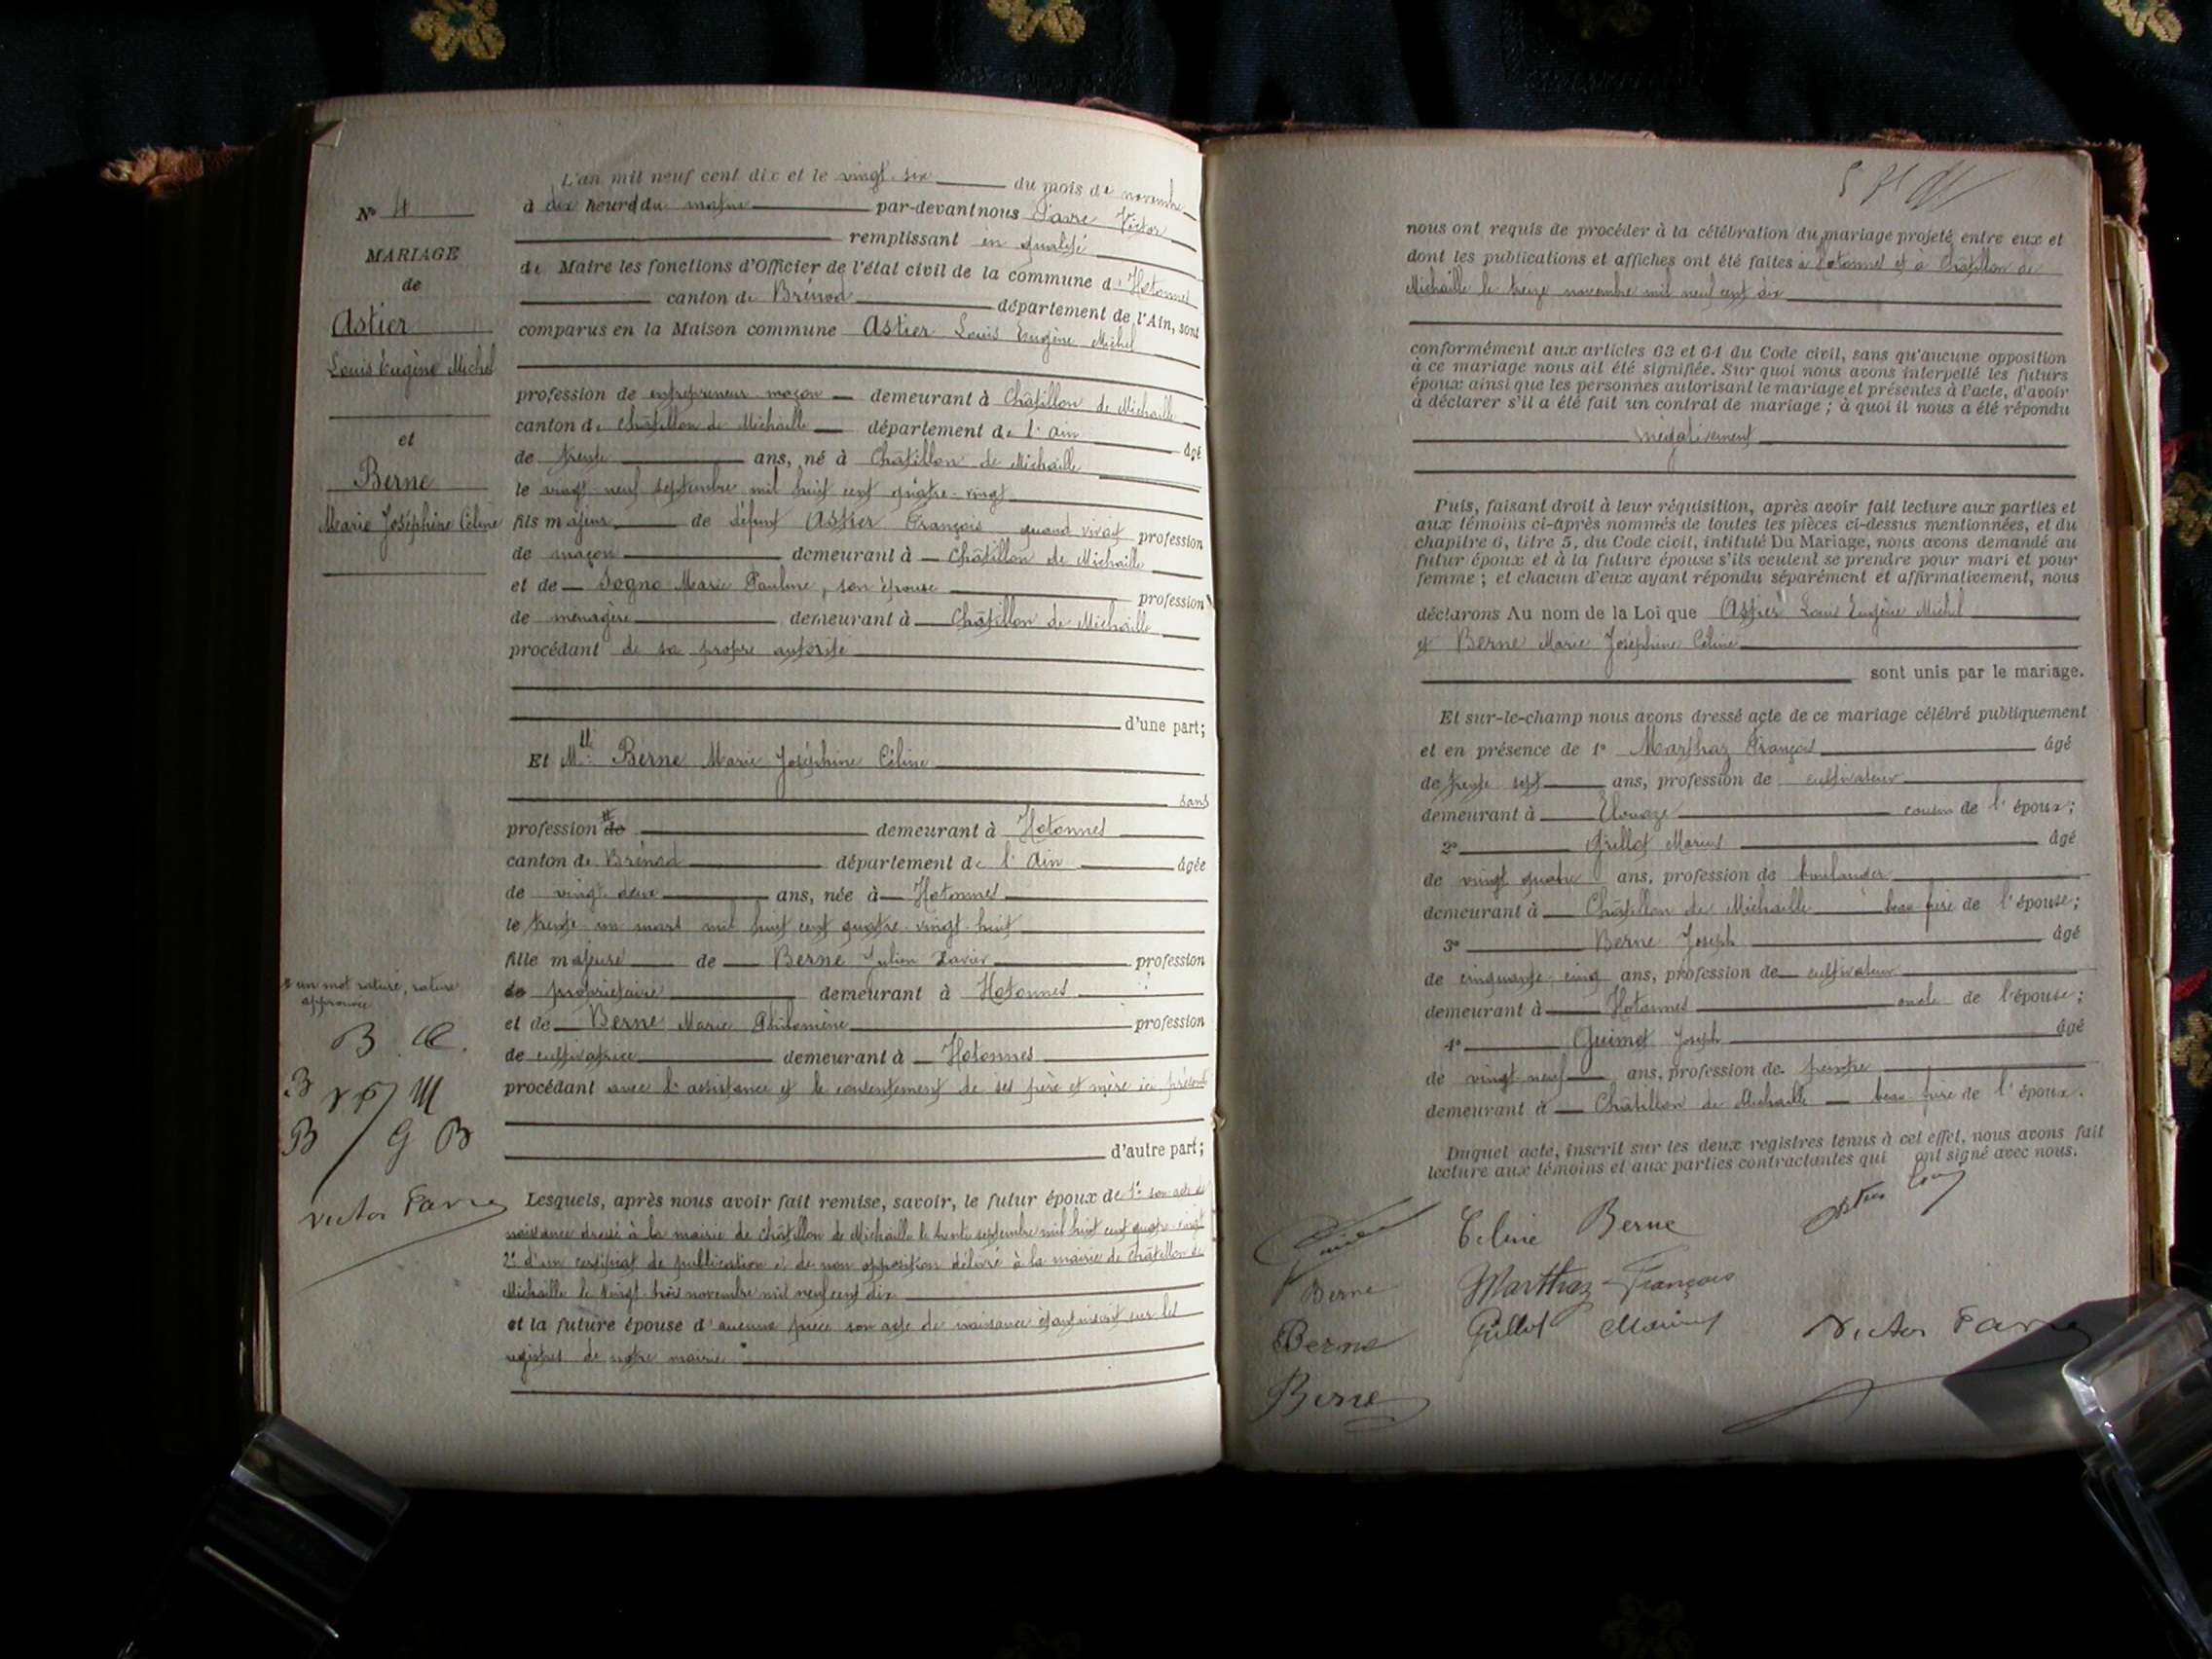 N° 4
MARIAGE
de
Astier
Louis Eugène Michel
et
Berne
Marie Joséphine Céline
un mot raturé, rature
approuvée
B
B
B
G B
Victor Favre
L'an mil neuf cent dix et le vingt six du mois de novembre
à dix heures du matin par-devant nous Favre Victor
remplissant en qualité
de Maire les fonctions d'Officier de l'état civil de la commune d'Hotonnes
canton de Brénod département de l'Ain, sont
comparus en la Maison commune Astier Louis Eugène Michel
profession de entrepreneur maçon demeurant à Châtillon de Michaille
canton de Châtillon de Michaille département de l'ain âgé
de trente ans, né à Châtillon de Michaille
le vingt neuf septembre mil huit cent quatre-vingt
fils majeur de défunt Astier François quand vivait profession
de maçon demeurant à Châtillon de Michaille
et de Sogno Marie Pauline, son épouse profession
de ménagère demeurant à Châtillon de Michaille
procédant de sa propre autorité
d'une part;
Et Mlle Berne Marie Joséphine Céline
sans
profession de demeurant à Hotonnes
canton de Brénod département de l'Ain âgée
de vingt deux ans, née à Hotonnes
le trente un mars mil huit cent quatre-vingt-huit
fille majeure de Berne Julien Xavier profession
de propriétaire demeurant à Hotonnes
et de Berne Marie Philomène profession
de cultivatrice demeurant à Hotonnes
procédant avec l'assistance et le consentement de ses père et mère ici présents
d'autre part;
Lesquels, après nous avoir fait remise, savoir, le futur époux de 1° son acte de
naissance dressé à la mairie de Châtillon de Michaille le trente septembre mil huit cent quatre-vingt
2° d'un certificat de publication et de non opposition délivré à la mairie de Châtillon de
Michaille le vingt-trois novembre mil neuf cent dix
et la future épouse d'aucune pièce son acte de naissance étant inscrit sur les
registres de notre mairie
nous ont requis de procéder à la célébration du mariage projeté entre eux et
dont les publications et affiches ont été faites à Hotonnes et à Châtillon de
Michaille le treize novembre mil neuf cent dix
conformément aux articles 63 et 64 du Code civil, sans qu'aucune opposition
à ce mariage nous ait été signifiée. Sur quoi nous avons interpellé les futurs
époux ainsi que les personnes autorisant le mariage et présentes à l'acte, d'avoir
à déclarer s'il a été fait un contrat de mariage ; à quoi il nous a été répondu
négativement
Puis, faisant droit à leur réquisition, après avoir fait lecture aux parties et
aux témoins ci-après nommés de toutes les pièces ci-dessus mentionnées, et du
chapitre 6, titre 5, du Code civil, intitulé Du Mariage, nous avons demandé au
futur époux et à la future épouse s'ils veulent se prendre pour mari et pour
femme ; et chacun d'eux ayant répondu séparément et affirmativement, nous
déclarons Au nom de la Loi que Astier Louis Eugène Michel
et Berne Marie Joséphine Céline
sont unis par le mariage.
Et sur-le-champ nous avons dressé acte de ce mariage célébré publiquement
et en présence de 1° Marthaz François âgé
de trente sept ans, profession de cultivateur
demeurant à cousin de l'époux;
2° Grillot Marius âgé
de vingt quatre ans, profession de boulanger
demeurant à Châtillon de Michaille beau frère de l'épouse;
3° Berne Joseph âgé
de cinquante-cinq ans, profession de cultivateur
demeurant à Hotonnes oncle de l'épouse;
4° Guimet Joseph âgé
de vingt-neuf ans, profession de peintre
demeurant à Châtillon de Michaille beau frère de l'époux.
Duquel acte, inscrit sur les deux registres tenus à cet effet, nous avons fait
lecture aux témoins et aux parties contractantes qui ont signé avec nous.
Céline Berne
Astier Louis
Berne
Marthaz François
Berne
Grillot Marius
Victor Favre
Berne